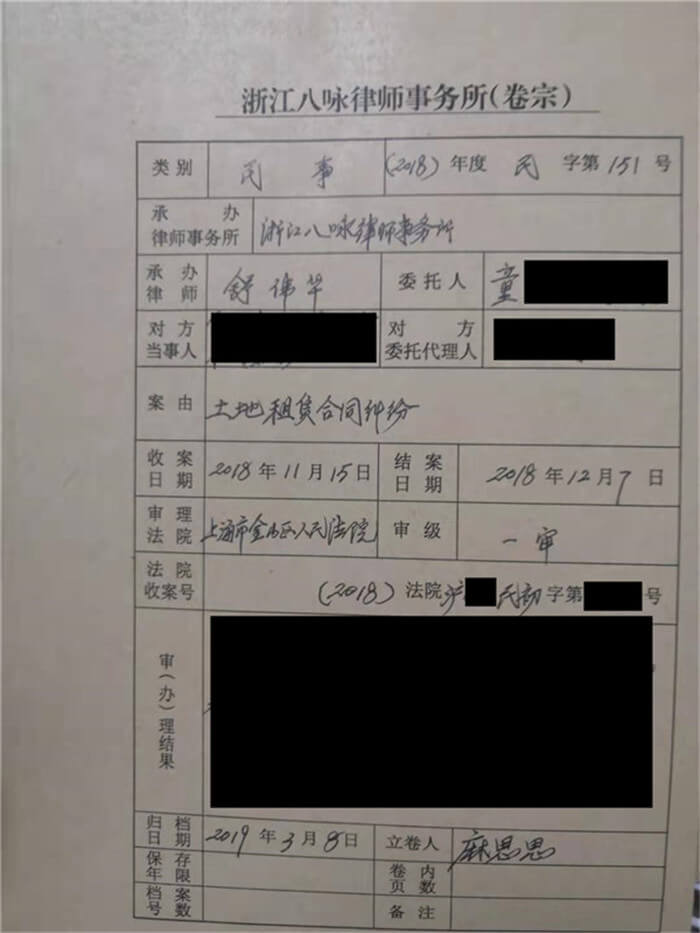 浙江八咏律师事务所(卷宗)
类别 民事 (2018) 年度 民 字第 151 号
承办律师事务所 浙江八咏律师事务所
承办律师 舒伟华 委托人 童
对方当事人 对方委托代理人
案由 土地租赁合同纠纷
收案日期 2018年11月15日 结案日期 2018年12月7日
审理法院 上海市金山区人民法院 审级 一审
法院收案号 (2018) 法院沪 民初字第 号
审(办)理结果
归档日期 2019年3月8日 立卷人 麻思思
保存年限 卷内页数
档案号数 备注